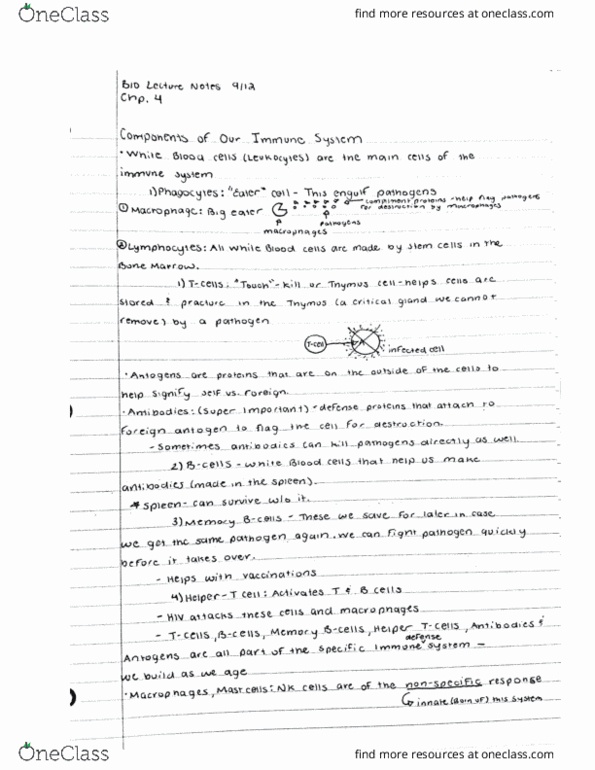 OneClass
find more resources at oneclass.com
BIO Lecture Notes 9/12
Chp. 4
Components of Our Immune System
• White Blood cells (Leukocytes) are the main cells of the
immune system
1) Phagocytes: "Eater" cell - This engulf pathogens
① Macrophage: Big eater
compliment proteins - help flag pathogens
for destruction by macrophages
pathogens
macrophages
② Lymphocytes: All White Blood cells are made by stem cells in the
Bone Marrow.
1) T-cells: "Touch" - kill or Thymus cell - helps cells are
stored & practure in the Thymus (a critical gland we cannot
remove) by a pathogen
T-cell
infected cell
• Antogens are proteins that are on the outside of the cells to
help signify self vs. foreign.
• Antibodies: (Super Important) - defense proteins that attach to
foreign antogen to flag the cell for destruction.
- Sometimes antibodies can kill pathogens directly as well.
2) B-cells - White Blood cells that help us make
antibodies (made in the spleen).
* Spleen - can survive w/o it.
3) Memory B-cells - These we save for later in case
we got the same pathogen again. We can fight pathogen quickly
before it takes over.
- Helps with vaccinations
4) Helper - T cell: Activates T & B cells
- HIV attacks these cells and macrophages
- T-cells, B-cells, Memory B-cells, Helper T-cells, Antibodies &
Antogens are all part of the specific Immune defense system -
we build as we age
• Macrophages, Mast cells: NK cells are of the non-specific response
innate (born w/) this system
OneClass
find more resources at oneclass.com